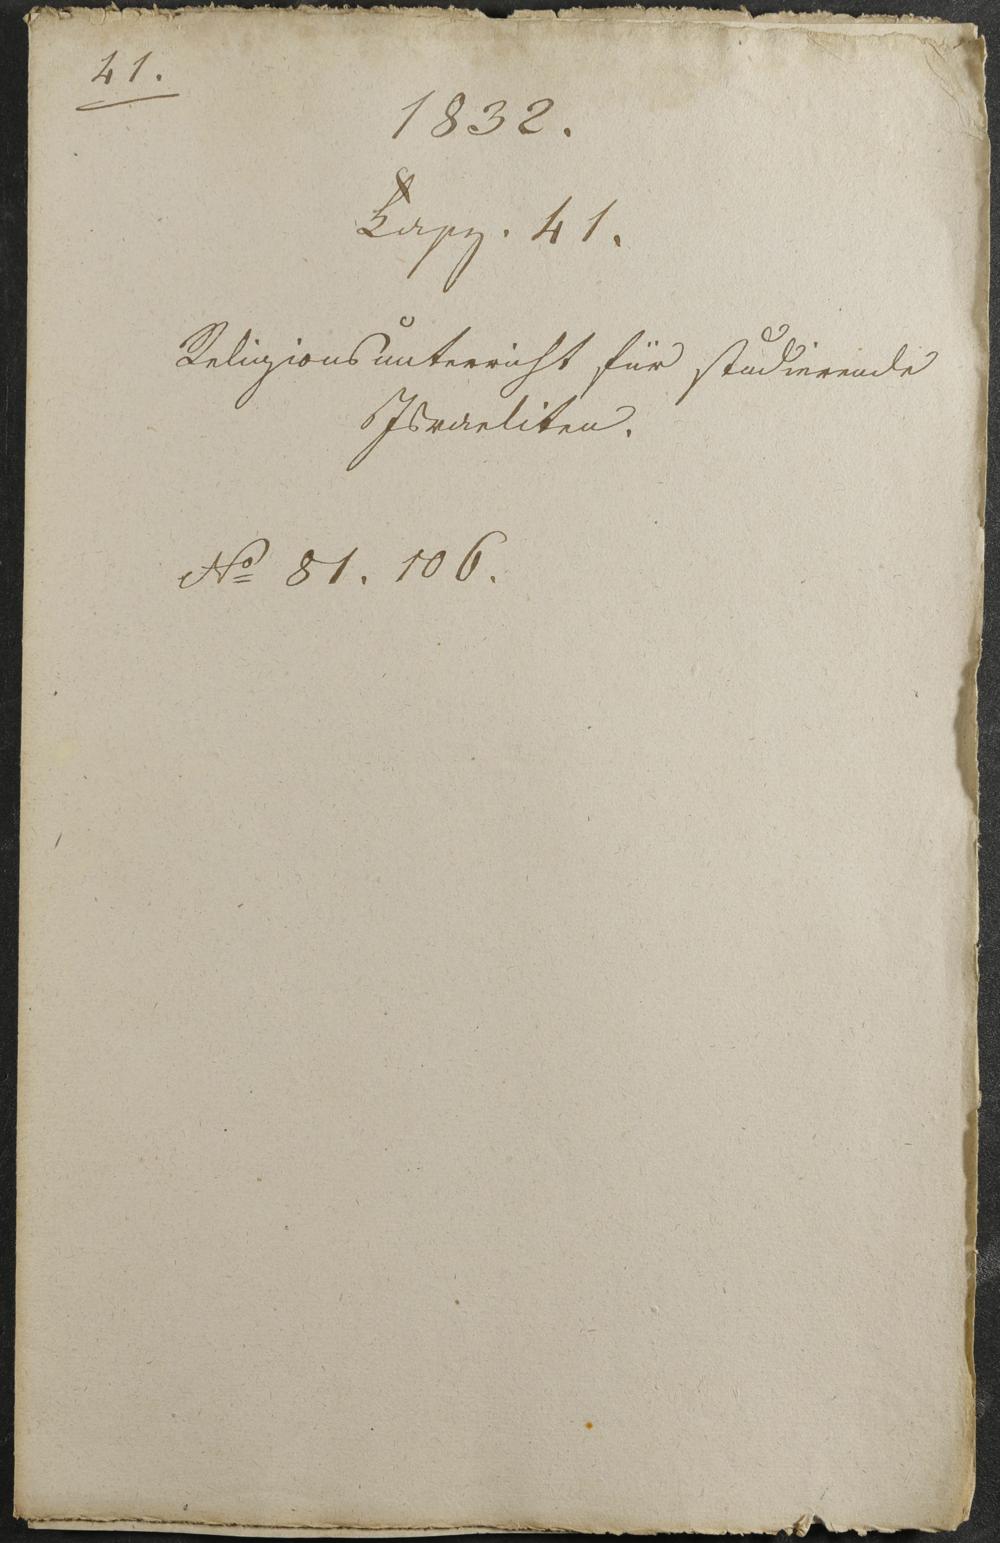 41.
1832.
Kapz. 41.
Religionsunterricht für studierende
Israeliten.
No 81. 106.